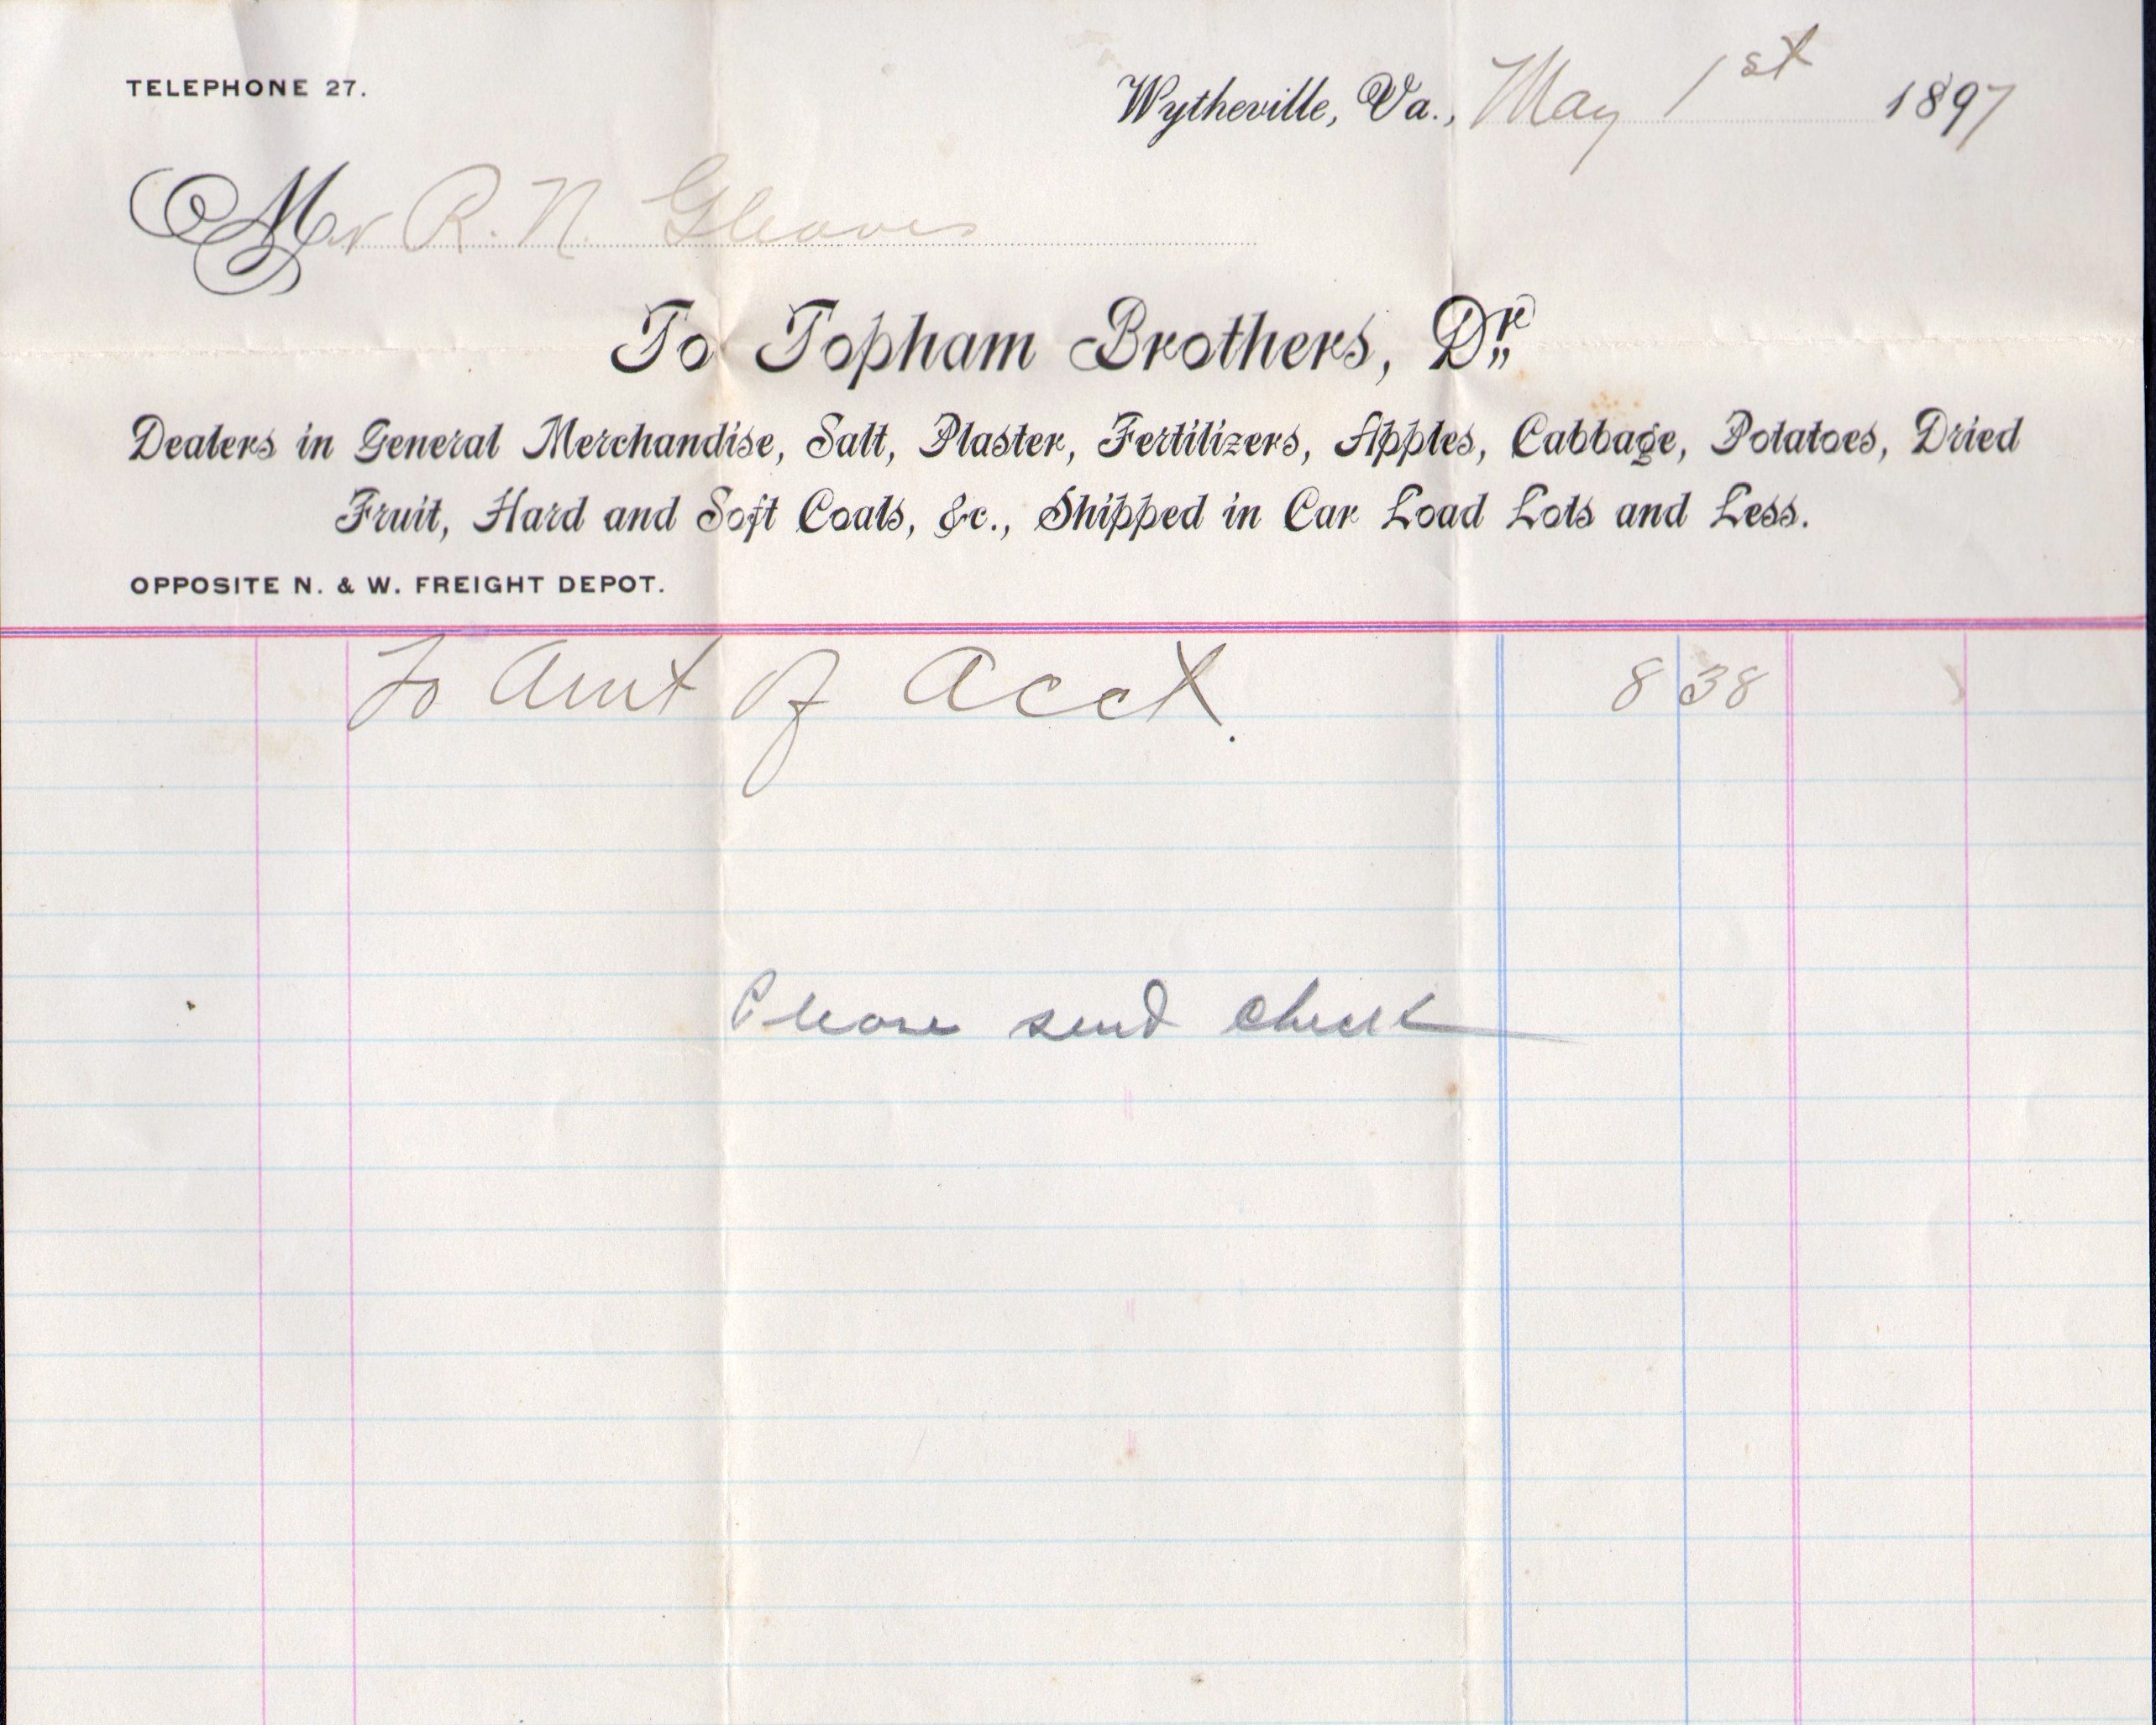 TELEPHONE 27.
Wytheville, Va., May 1st 1897
Mr R. N. Gleaves
To Topham Brothers, Dr.
Dealers in General Merchandise, Salt, Plaster, Fertilizers, Apples, Cabbage, Potatoes, Dried
Fruit, Hard and Soft Coals, &c., Shipped in Car Load Lots and Less.
OPPOSITE N. & W. FREIGHT DEPOT.
To Amt of Acct. 8 38
Please send check